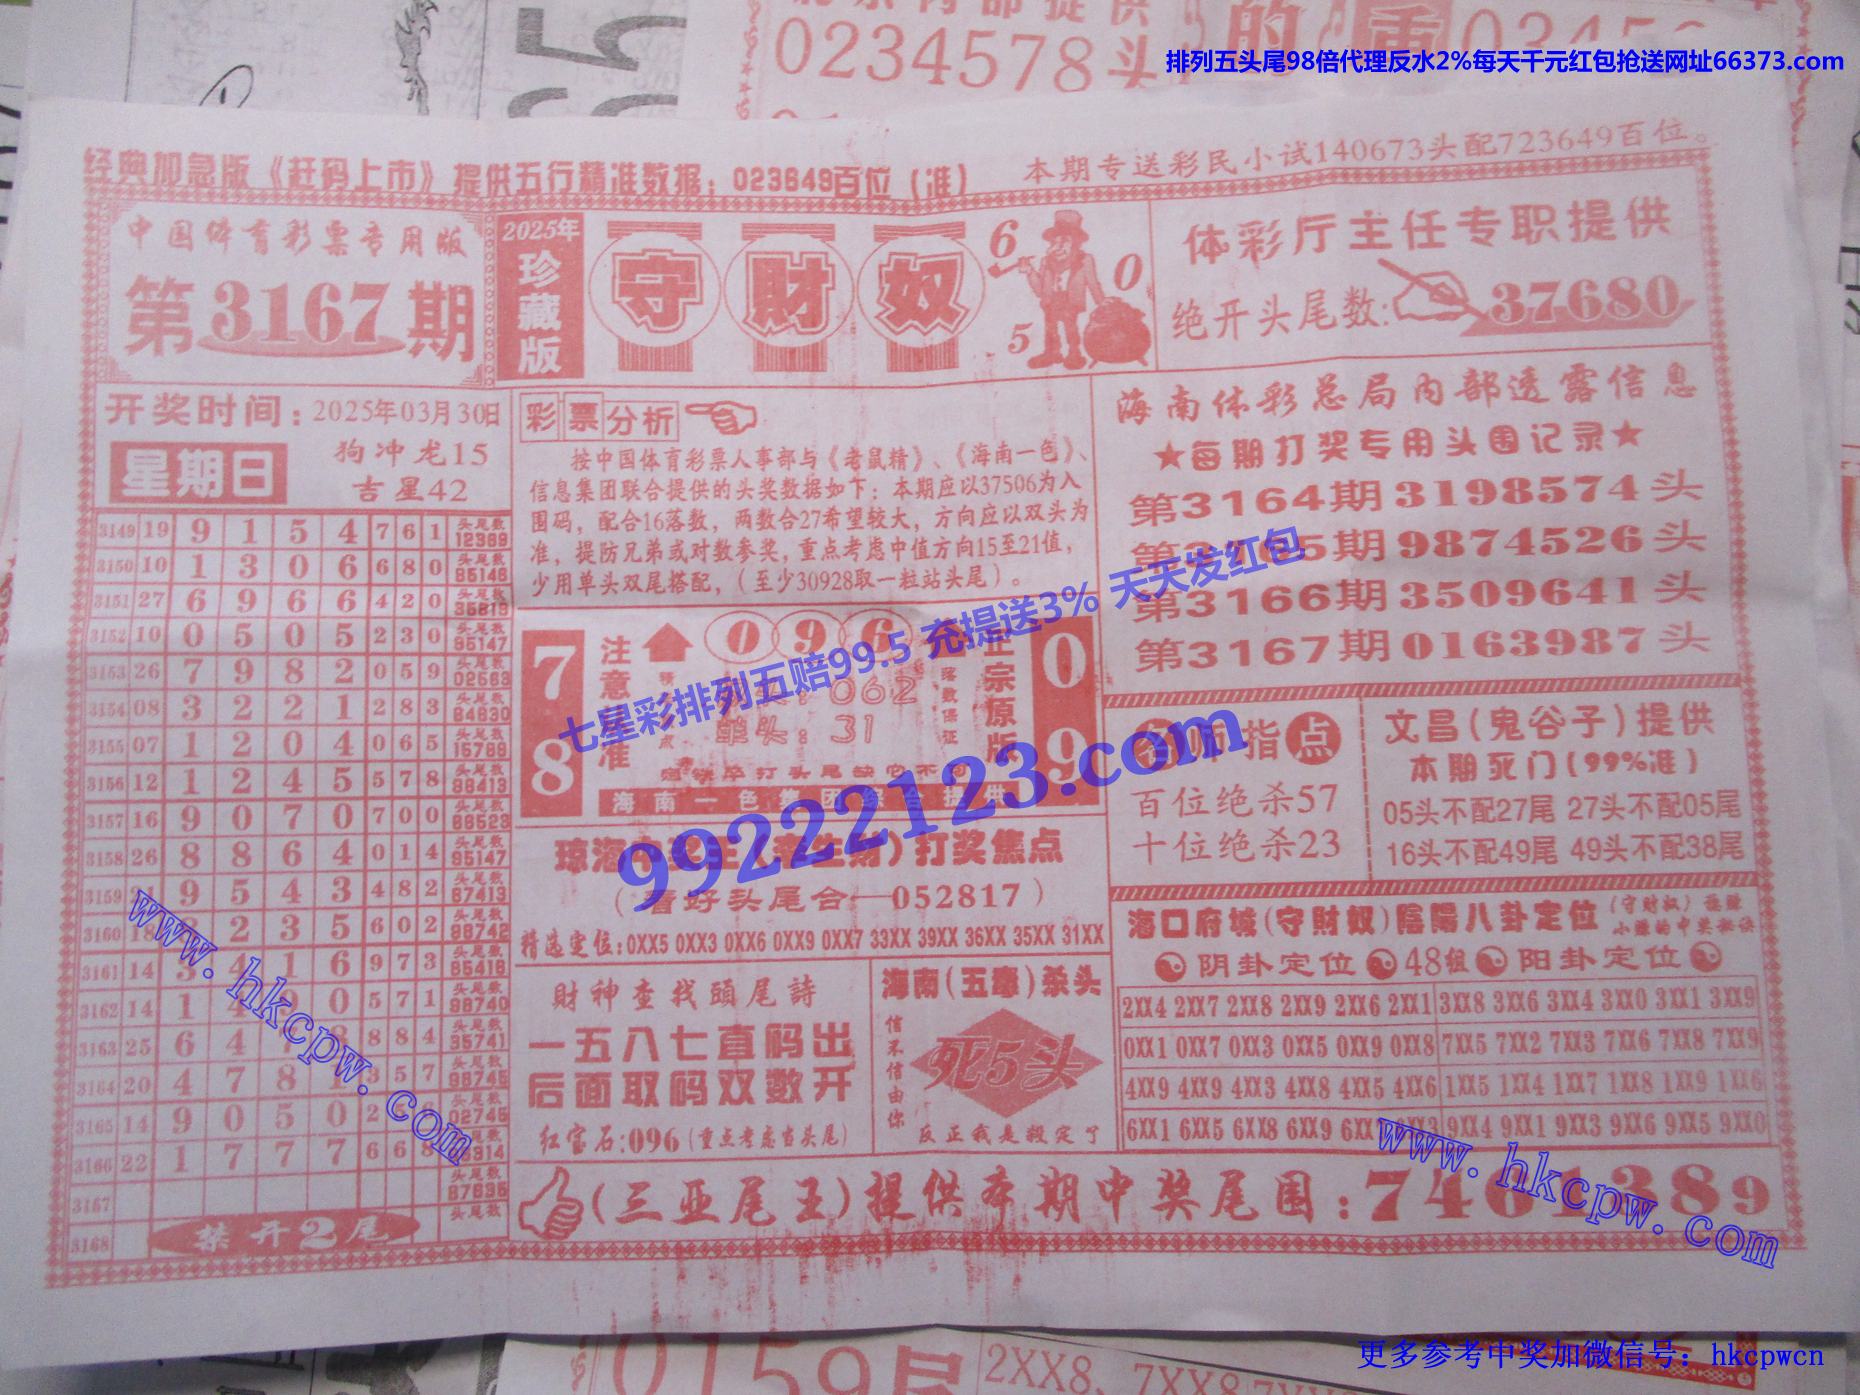 0234578头
排列五头尾98倍代理反水2%每天千元红包抢送网址66373.com
经典加急版《赶码上市》提供五行精准数据：023649百位（准）
本期专送彩民小试140673头配723649百位。
中国体育彩票专用版
第3167期
2025年
珍藏版
守財奴
6
0
5
体彩厅主任专职提供
绝开头尾数：37680
开奖时间：2025年03月30日
星期日
狗冲龙15
吉星42
3149 19 9 1 5 4 7 6 1 头尾数 12369
3150 10 1 3 0 6 6 8 0 头尾数 85146
3151 27 6 9 6 6 4 2 0 头尾数 35819
3152 10 0 5 0 5 2 3 0 头尾数 85147
3153 26 7 9 8 2 0 5 9 头尾数 02563
3154 08 3 2 2 1 2 8 3 头尾数 84830
3155 07 1 2 0 4 0 6 5 头尾数 15789
3156 12 1 2 4 5 5 7 8 头尾数 86413
3157 16 9 0 7 0 7 0 0 头尾数 86523
3158 26 8 8 6 4 0 1 4 头尾数 95147
3159 9 5 4 3 4 8 2 头尾数 67413
3160 18 2 3 5 6 0 2 头尾数 98742
3161 14 3 4 1 6 9 7 3 头尾数 85416
3162 14 1 4 9 0 5 7 1 头尾数 98740
3163 25 6 4 7 8 8 8 4 头尾数 35741
3164 20 4 7 8 1 3 5 7 头尾数 98745
3165 14 9 0 5 0 2 5 6 头尾数 02746
3166 22 1 7 7 7 6 6 8 头尾数
3167 头尾数 87635
3168 禁开2尾 头尾数
彩票分析
按中国体育彩票人事部与《老鼠精》、《海南一色》、
信息集团联合提供的头奖数据如下：本期应以37506为入
围码，配合16落数，两数合27希望较大，方向应以双头为
准，提防兄弟或对数参奖，重点考虑中值方向15至21值，
少用单头双尾搭配，（至少30928取一粒站头尾）。
78
注意准
096
062
单头：31
落数保证
正宗原版
09
海南一色集团综合提供
打奖焦点
（看好头尾合—052817）
精选定位：0XX5 0XX3 0XX6 0XX9 0XX7 33XX 39XX 36XX 35XX 31XX
財神查找頭尾詩
一五八七直码出
后面取码双数开
红宝石：096（重点考虑当头尾）
海南（五毒）杀头
信不信由你
死5头
反正我是毅定了
海南体彩总局内部透露信息
★每期打奖专用头围记录★
第3164期3198574头
第3165期9874526头
第3166期3509641头
第3167期0163987头
名师指点
百位绝杀57
十位绝杀23
文昌（鬼谷子）提供
本期死门（99%准）
05头不配27尾 27头不配05尾
16头不配49尾 49头不配38尾
海口府城（守財奴）陰陽八卦定位
阴卦定位 48组 阳卦定位
2XX4 2XX7 2XX8 2XX9 2XX6 2XX1 3XX8 3XX6 3XX4 3XX0 3XX1 3XX9
0XX1 0XX7 0XX3 0XX5 0XX9 0XX8 7XX5 7XX2 7XX3 7XX6 7XX8 7XX9
4XX9 4XX9 4XX3 4XX8 4XX5 4XX6 1XX5 1XX4 1XX7 1XX8 1XX9 1XX6
6XX1 6XX5 6XX8 6XX9 9XX4 9XX1 9XX3 9XX6 9XX5 9XX0
（三亚尾王）提供本期中奖尾围：7461389
七星彩排列五赔99.5 充提送3% 天天发红包
99222123.com
www.hkcpw.com
www.hkcpw.com
0159尾
2XX8、7XX8
更多参考中奖加微信号：hkcpwcn